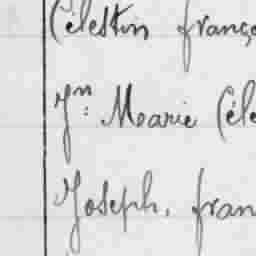 Célestin franç
Jn: Mearie Céle
Joseph, fran